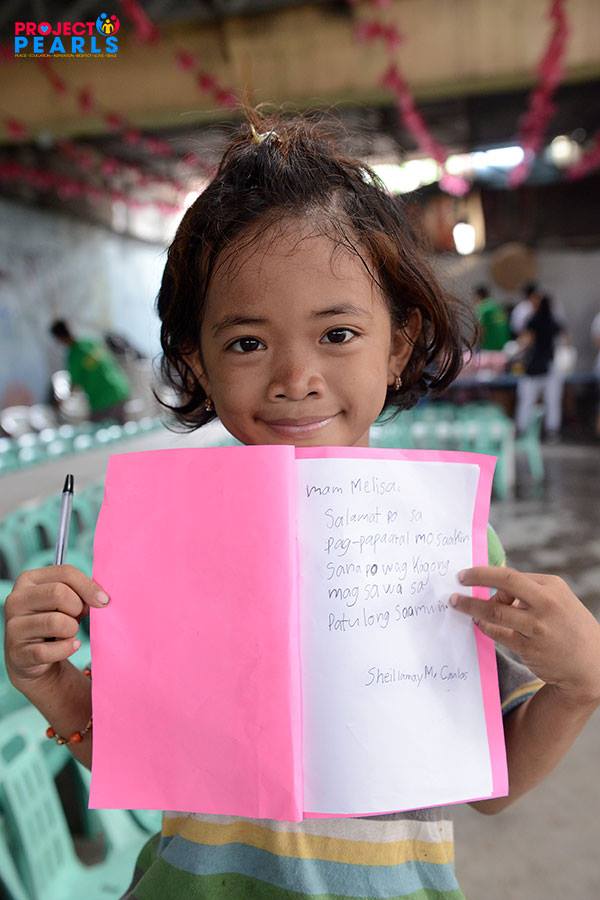 PROJECT
PEARLS
PEACE • EDUCATION • ASPIRATION • RESPECT • LOVE • SMILE
mam Melisa.
Salamat po sa
pag-papaaral mo saakin
sana po wag kayong
mag sawa sa
patulong saamin.
Sheillamay M. Canlas